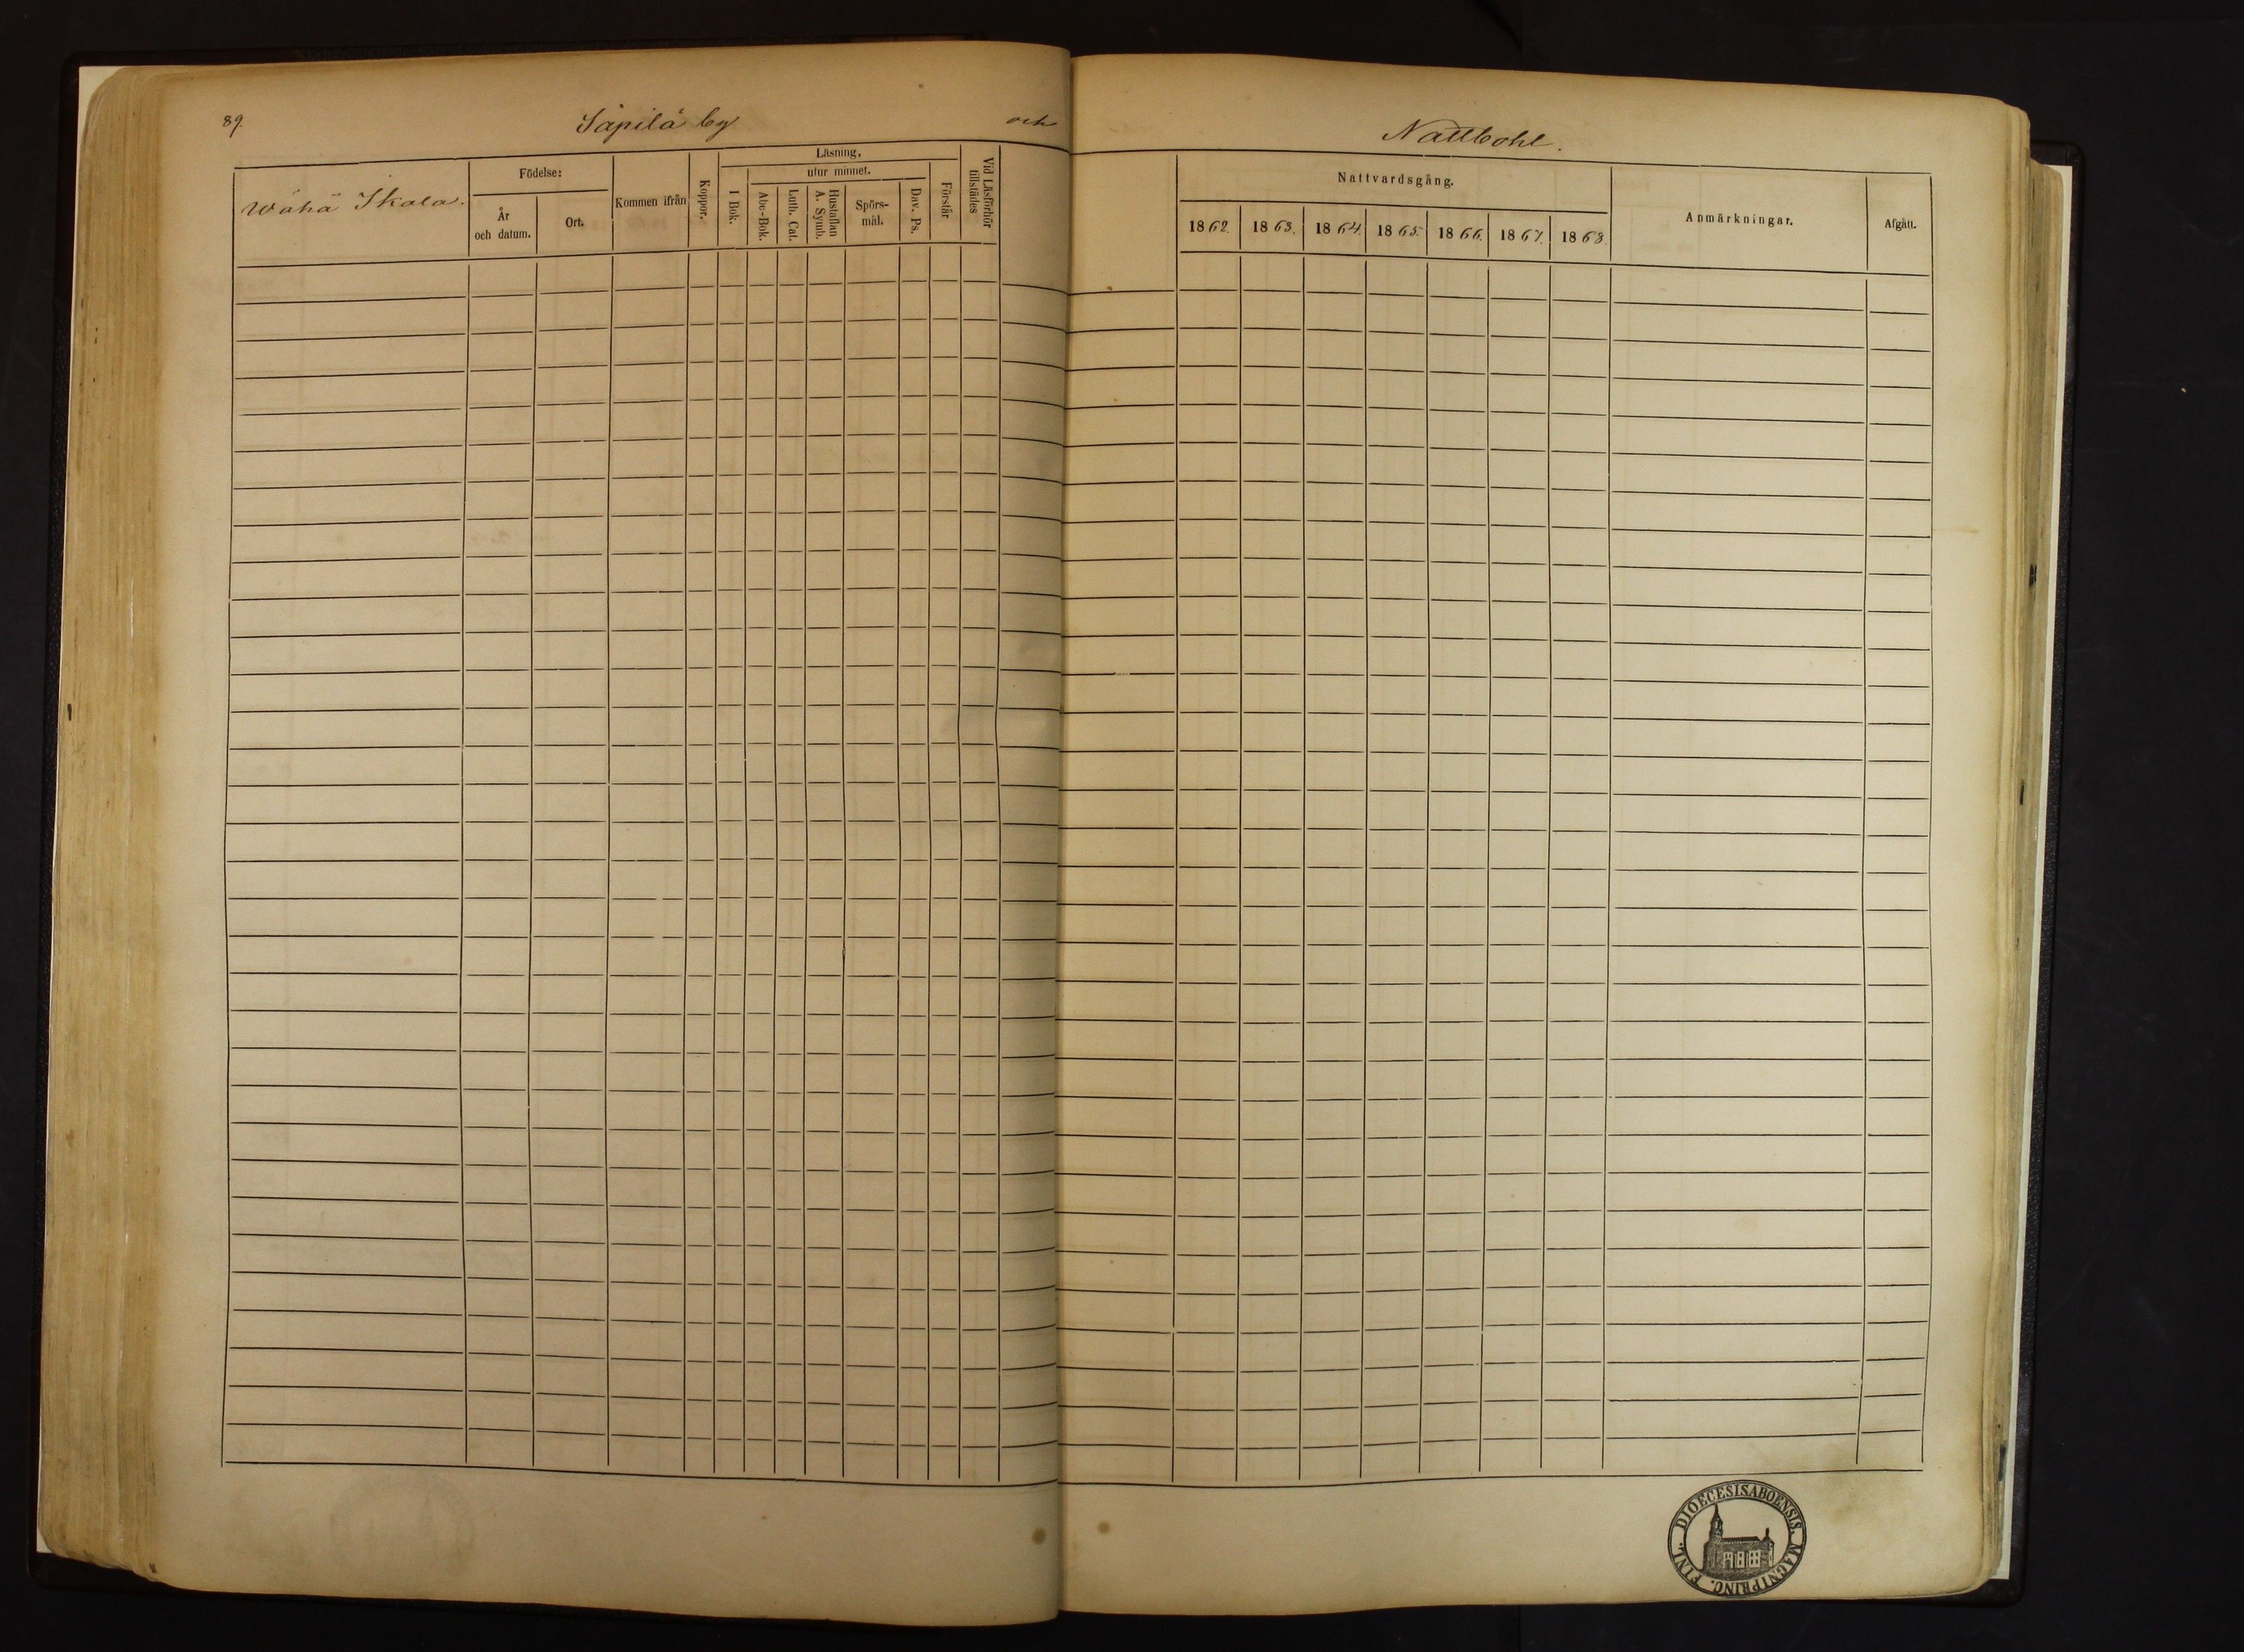 89.
Säpilä by
och
Nattbohl.
Wähä Skala.
Födelse:
År och datum.
Ort.
Kommen ifrån
Koppor.
Läsning,
utur minnet.
I Bok.
Abc-Bok.
Luth. Cat.
Hustaflan A. Symb.
Spörs-mål.
Dav. Ps.
Förstår
Vid Läsförhör tillstädes
Nattvardsgång.
1862. 1863. 1864. 1865. 1866. 1867. 1868.
Anmärkningar.
Afgått.
DIOECESIS ABOENSIS. MAGNI PRINC. FINL.